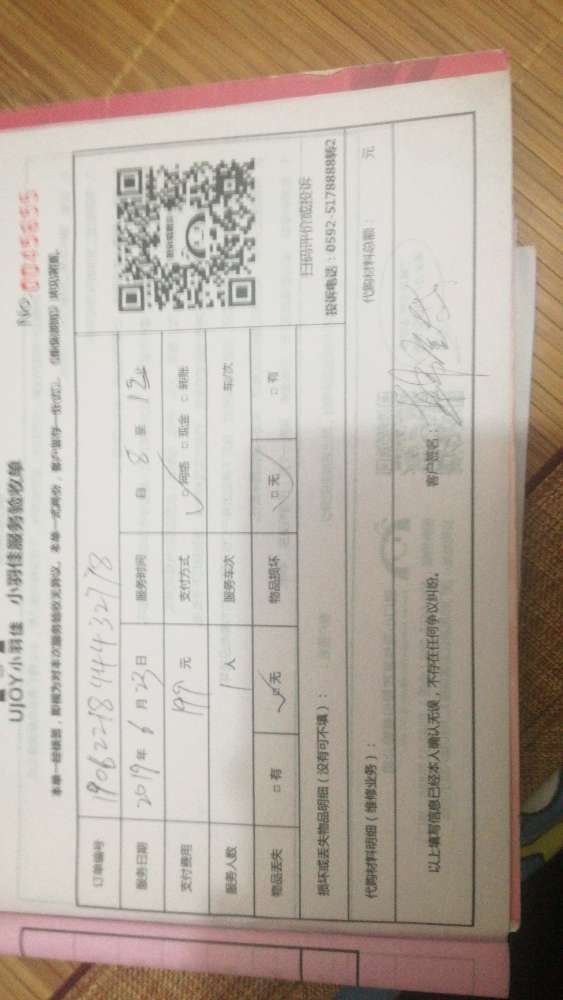 UJOY小羽佳 小羽佳服务验收单
No. 0045655
本单一经签署,即视为对本次服务验收无异议。本单一式两份,客户留存一份
订单编号 190622184443278
服务日期 2019年6月23日 服务时间 自 8 至 12
支付费用 199 元 支付方式 网络 □ 现金 □ 转账
服务人数 1 人 服务车次 车/次
物品丢失 □ 有 □ 无 物品损坏 □ 无 □ 有
扫码评价或投诉
投诉电话:0592-5178888转2
损坏或丢失物品明细(没有可不填):
代购材料明细(维修业务): 代购材料总额: 元
以上填写信息已经本人确认无误,不存在任何争议纠纷。 客户签名: